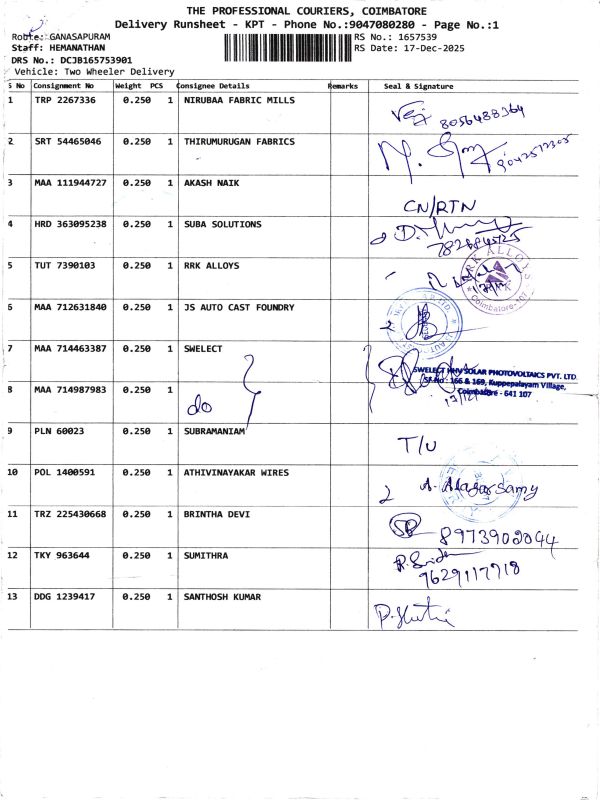 THE PROFESSIONAL COURIERS, COIMBATORE
Delivery Runsheet - KPT - Phone No.:9047080280 - Page No.:1
Route: GANASAPURAM
RS No.: 1657539
Staff: HEMANATHAN
RS Date: 17-Dec-2025
DRS No.: DCJB165753901
Vehicle: Two Wheeler Delivery
S No Consignment No Weight PCS Consignee Details Remarks Seal & Signature
1 TRP 2267336 0.250 1 NIRUBAA FABRIC MILLS
8056488364
2 SRT 54465046 0.250 1 THIRUMURUGAN FABRICS
3 MAA 111944727 0.250 1 AKASH NAIK
CN/RTN
4 HRD 363095238 0.250 1 SUBA SOLUTIONS
5 TUT 7390103 0.250 1 RRK ALLOYS
RRK ALLOYS
Coimbatore-107
6 MAA 712631840 0.250 1 JS AUTO CAST FOUNDRY
2
7 MAA 714463387 0.250 1 SWELECT
SWELECT HHV SOLAR PHOTOVOLTAICS PVT. LTD
SF.No : 166 & 169, Kuppepalayam Village,
Coimbatore - 641 107
8 MAA 714987983 0.250 1
do
9 PLN 60023 0.250 1 SUBRAMANIAM
T/U
10 POL 1400591 0.250 1 ATHIVINAYAKAR WIRES
2 A. Alagar Samy
11 TRZ 225430668 0.250 1 BRINTHA DEVI
SB 8973902044
12 TKY 963644 0.250 1 SUMITHRA
9629117718
13 DDG 1239417 0.250 1 SANTHOSH KUMAR